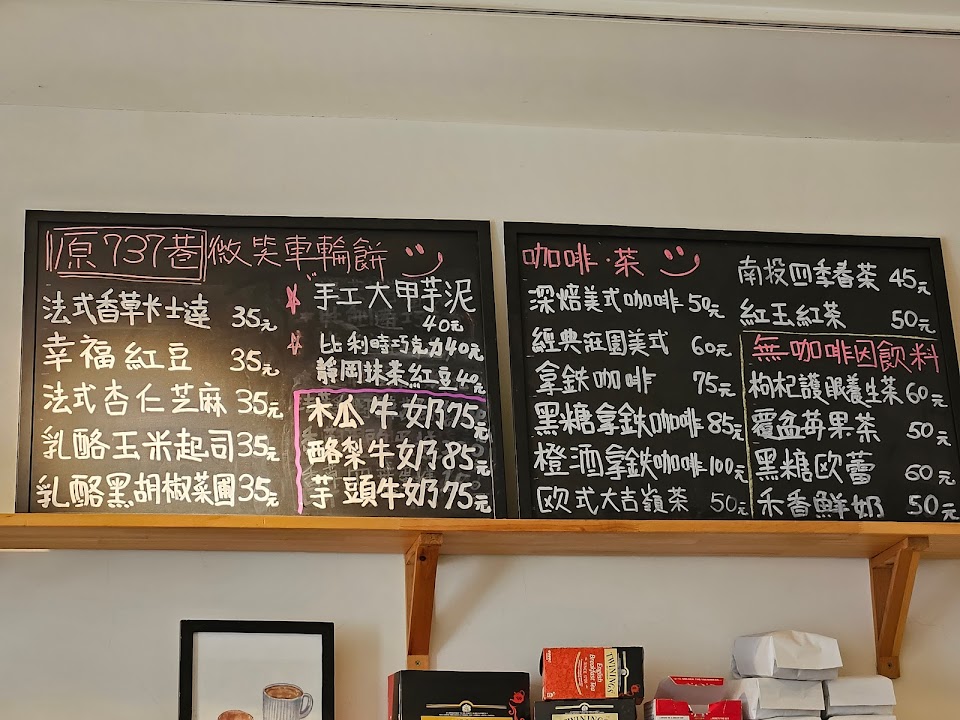 原737巷 微笑車輪餅
法式香草卡士達 35元
幸福紅豆 35元
法式杏仁芝麻 35元
乳酪玉米起司 35元
乳酪黑胡椒菜圃 35元
手工大甲芋泥
40元
比利時巧克力 40元
靜岡抹茶紅豆 40元
木瓜牛奶 75元
酪梨牛奶 85元
芋頭牛奶 75元
咖啡·茶
深焙美式咖啡 50元
經典莊園美式 60元
拿鉄咖啡 75元
黑糖拿鉄咖啡 85元
橙酒拿鉄咖啡 100元
欧式大吉嶺茶 50元
南投四季春茶 45元
紅玉紅茶 50元
無咖啡因飲料
枸杞護眼養生茶 60元
覆盆苺果茶 50元
黑糖欧蕾 60元
禾香鮮奶 50元
English
Breakfast Tea
TWININGS
TWININGS